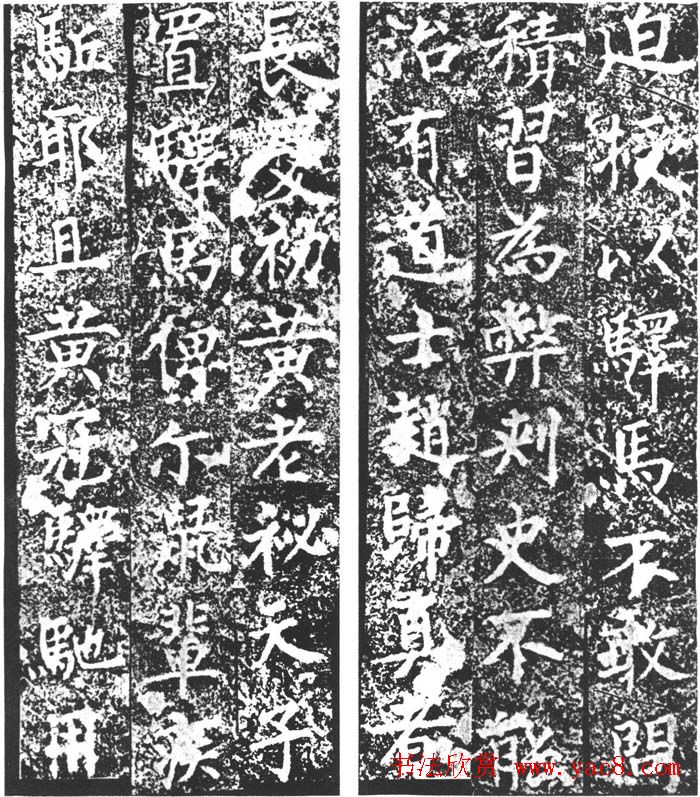 迫以驛馬不敢問
積習為弊刺史不能
治有道士趙歸真者
長慶初黄老祕天子
置驛馬俾尔輩疾
駈耶且黄冠驛馳用
书法欣赏 www.yac8.com